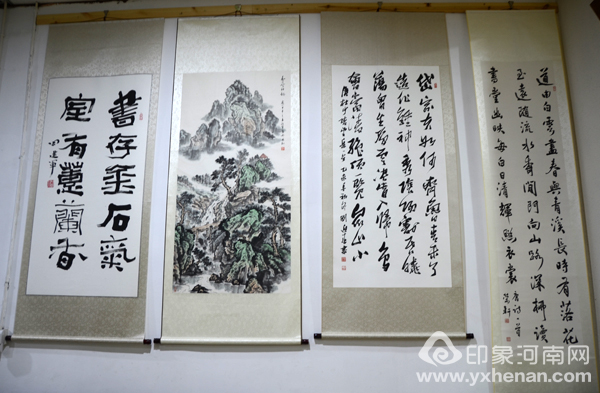 道由白雲盡春與青溪長時有落花
至遠隨流水香閒門向山路深柳讀
書堂幽映每白日清輝照衣裳
岱宗夫如何齊魯青未了
造化鍾神秀陰陽割昏曉
蕩胸生曾雲決眥入歸鳥
會當凌絕頂一覽眾山小
書存金石氣
室有蕙蘭香
印象河南网
www.yxhenan.com